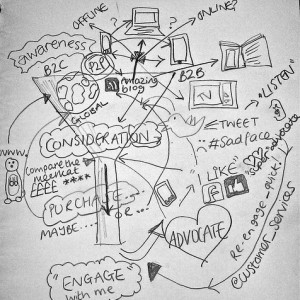 OFFLINE
ONLINE?
?
Awareness
B2C
P2P
B2B
Amazing
blog
GLOBAL
"LISTEN"
TWEET
#Sadface
CONSIDERATION
www.
Compare the
meerkat
£££ ****
"I LIKE"
f
super-advocate
PURCHASE...
MAYBE....
or...
ADVOCATE
Re-engage-quick!
@customer_services
"ENGAGE"
with me